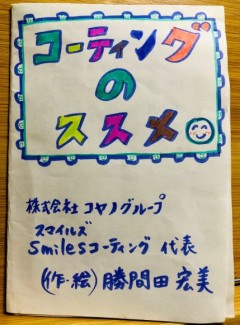 コーティング
の
ススメ
株式会社 コヤノグループ
スマイルズ
Smilesコーティング 代表
(作・絵) 勝間田 宏美